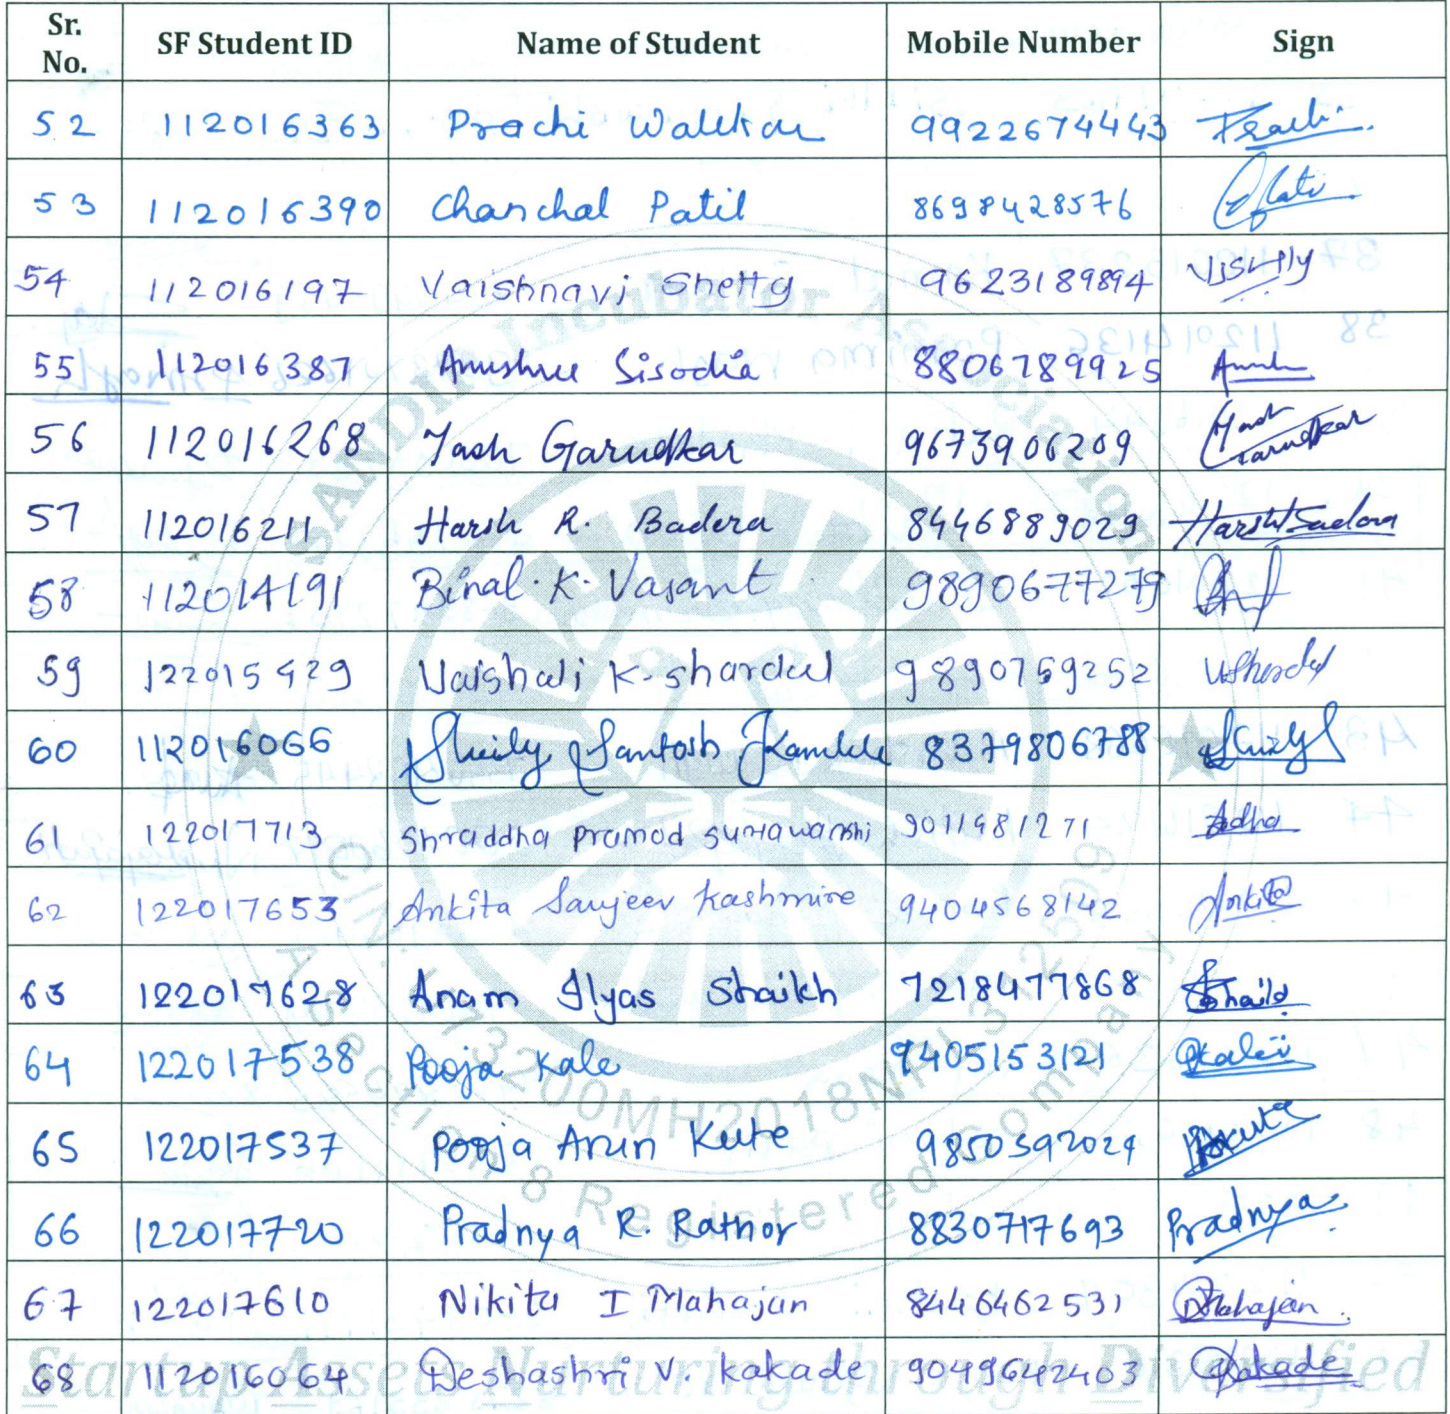 Sr. No. SF Student ID Name of Student Mobile Number Sign
52 112016363 Prachi Walekar 9922674443 Prachi
53 112016390 Chanchal Patil 8698428576
54 112016197 Vaishnavi Shetty 9623189894
55 112016387 Anushree Sisodia 8806789925
56 112016268 Yash Garudkar 9673906209 Yash Garudkar
57 112016211 Harsh R. Badera 8446889029
58 112014191 Binal. K. Vasant 9890677279
59 122015429 Vaishali K. shardul 9890759252
60 112016066 Santosh Kamble 8379806788
61 122017713 Shraddha pramod suryawanshi 9011981271
62 122017653 Ankita Sanjeev Kashmire 9404568142 Ankita
63 122017628 Anam Ilyas Shaikh 7218477868 Shaikh
64 122017538 Pooja Kale 9405153121
65 122017537 Pooja Arun Kute 9850592024
66 122017720 Pradnya R. Rathor 8830717693 Pradnya
67 122017610 Nikita I Mahajan 8446462531 Mahajan
68 112016064 Deshashri V. kakade 9049642403 Kakade
SANDIP Incubator Association
CIN: U73200MH2018NPL312509
A Section 8 Registered Company
Startup Assets Nurturing through Diversified